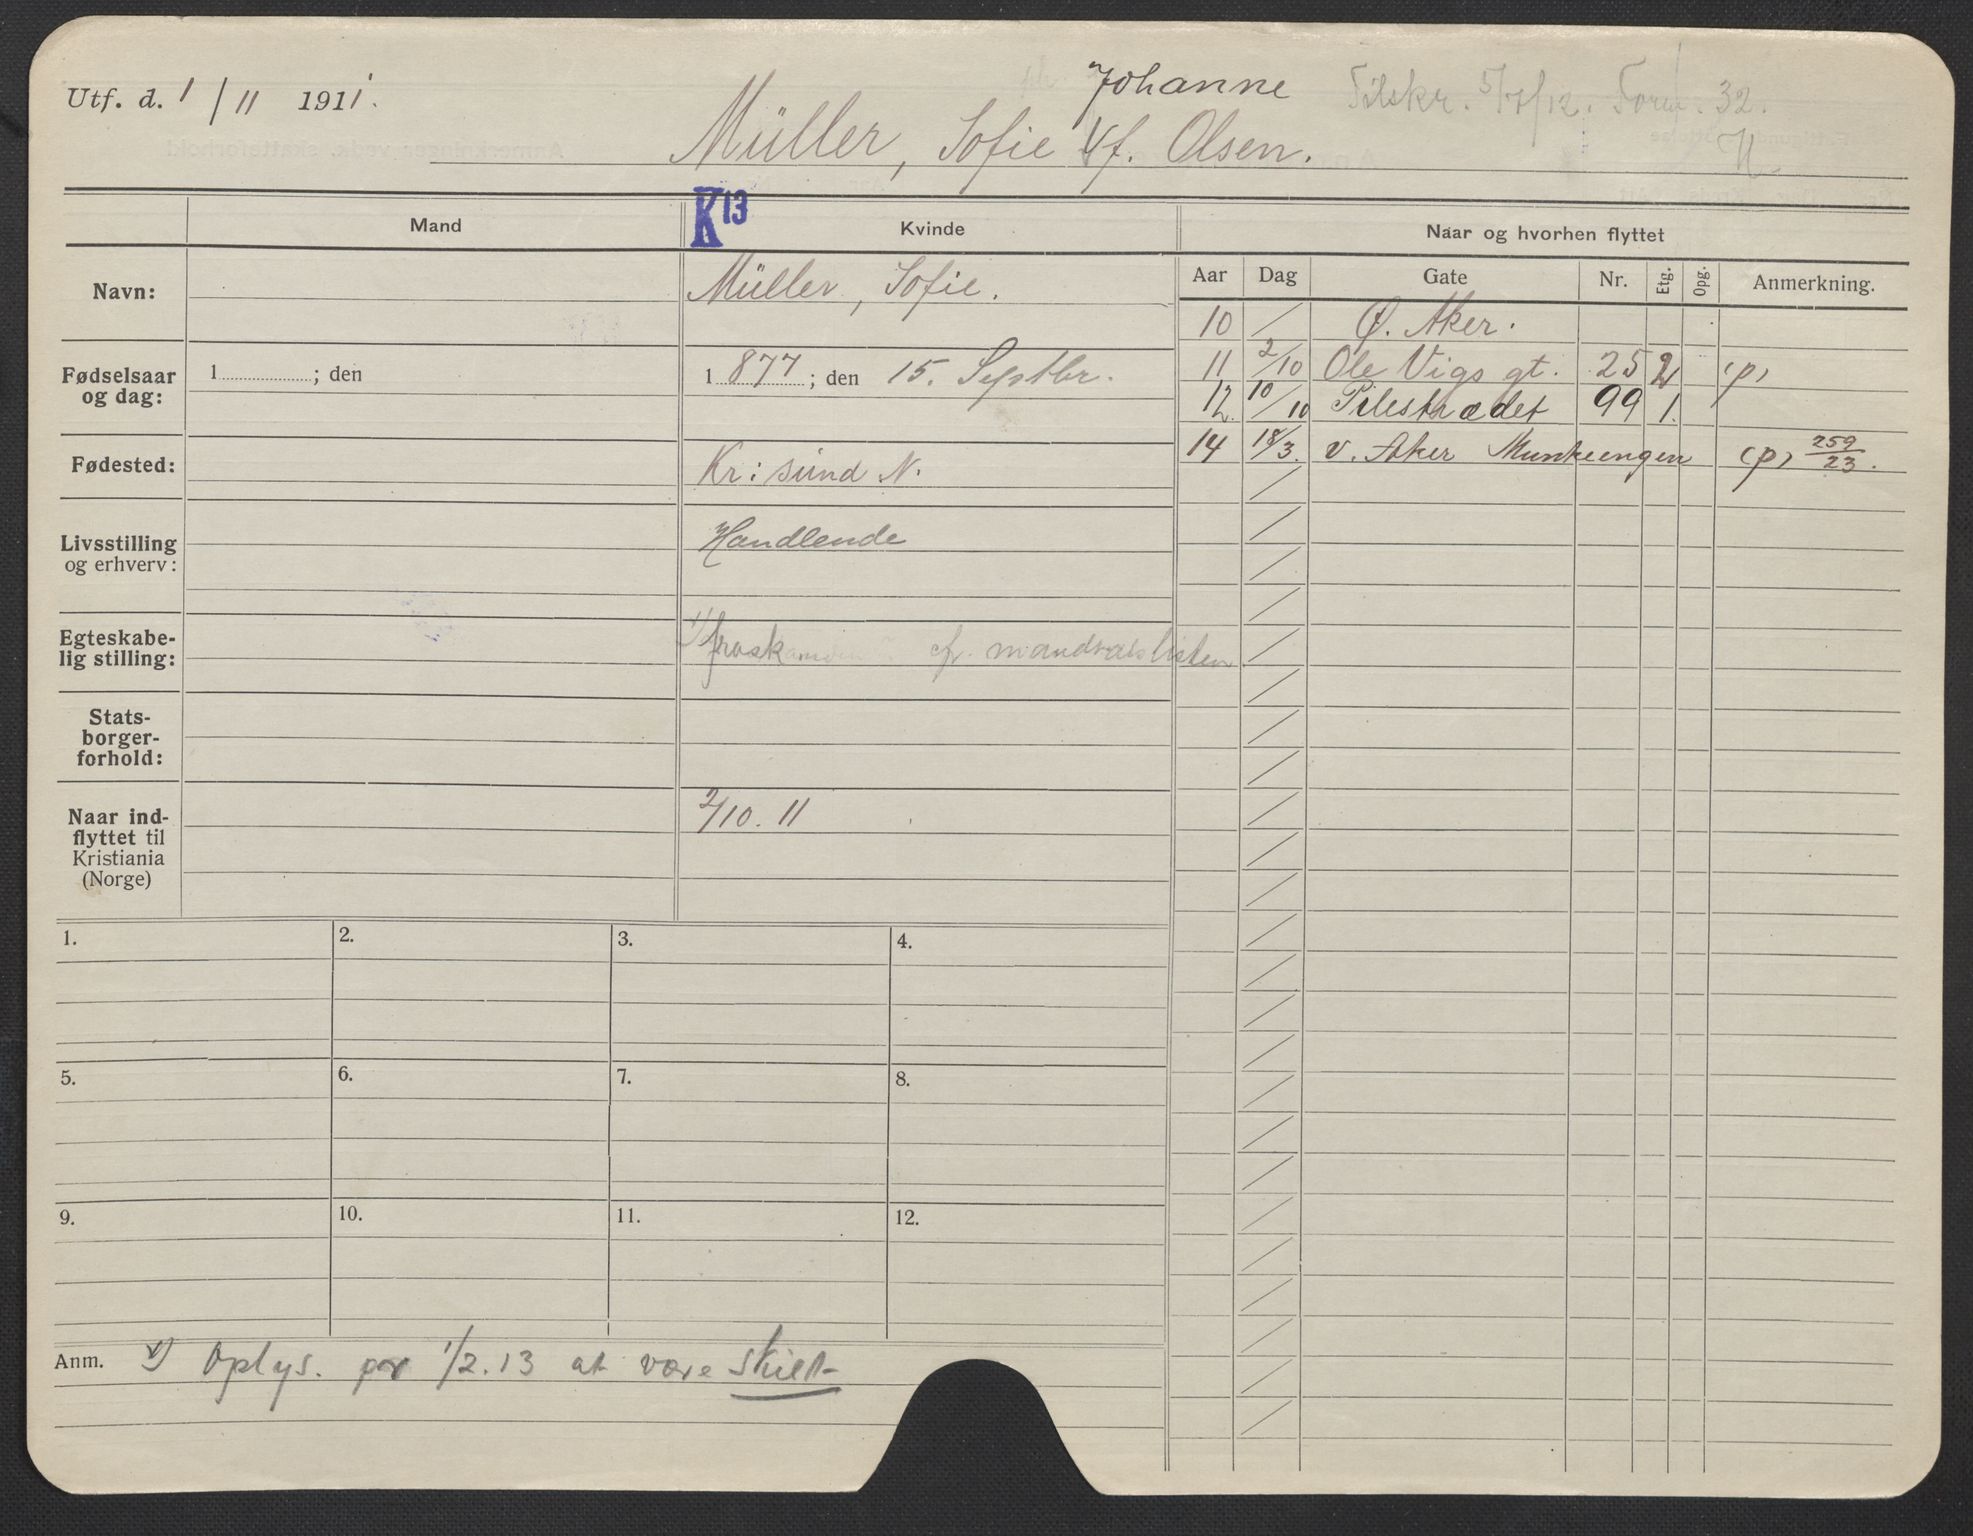 Utf. d. 1/11 1911.
Johanne
Tilskr. 5/7/12. Form. 32.
Müller, Sofie f. Olsen.
K13
Mand
Kvinde
Naar og hvorhen flyttet
Aar Dag Gate Nr. Etg. Opg. Anmerkning.
Navn: Müller, Sofie.
Fødselsaar og dag: 1 ; den
1877; den 15. Septbr.
Fødested: Kr:sund N.
Livsstilling og erhverv: Handlende
Egteskabelig stilling: 1) frask cfr. mandtalslisten
Statsborgerforhold:
Naar indflyttet til Kristiania (Norge) 2/10. 11
10 / Ø. Aker.
11 2/10 Ole Vigs gt. 25 2 (p)
12. 10/10 Pilestrædet 99 1.
14 18/3. V. Aker Munkeengen (p) 259/23.
1. 2. 3. 4.
5. 6. 7. 8.
9. 10. 11. 12.
Anm. 1) Oplys. pr 1/2.13 at være skilt